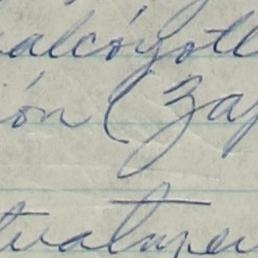 alcóyotl
ión (Zap
tualmen